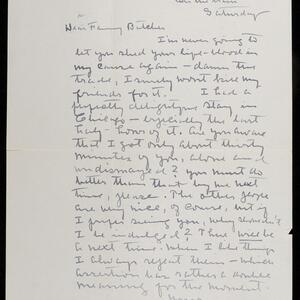 On the train
Saturday
Dear Fanny Butcher
I'm never going to
let you shed your life-blood in
my cause again – damn this
trade, I surely won't kill my
friends for it. I had a
perfectly delightful stay in
Chicago – especially the last
half-hour of it. Are you aware
that I got only about thirty
minutes of you, alone and
undismayed? You must do
better than that by me next
time, please. The other people
are very nice, of course, but if
I prefer seeing you, why shouldn't
I be indulged? There will be
a next time. When I like things
I always repeat them – which
assertion has rather a double
meaning for the moment.